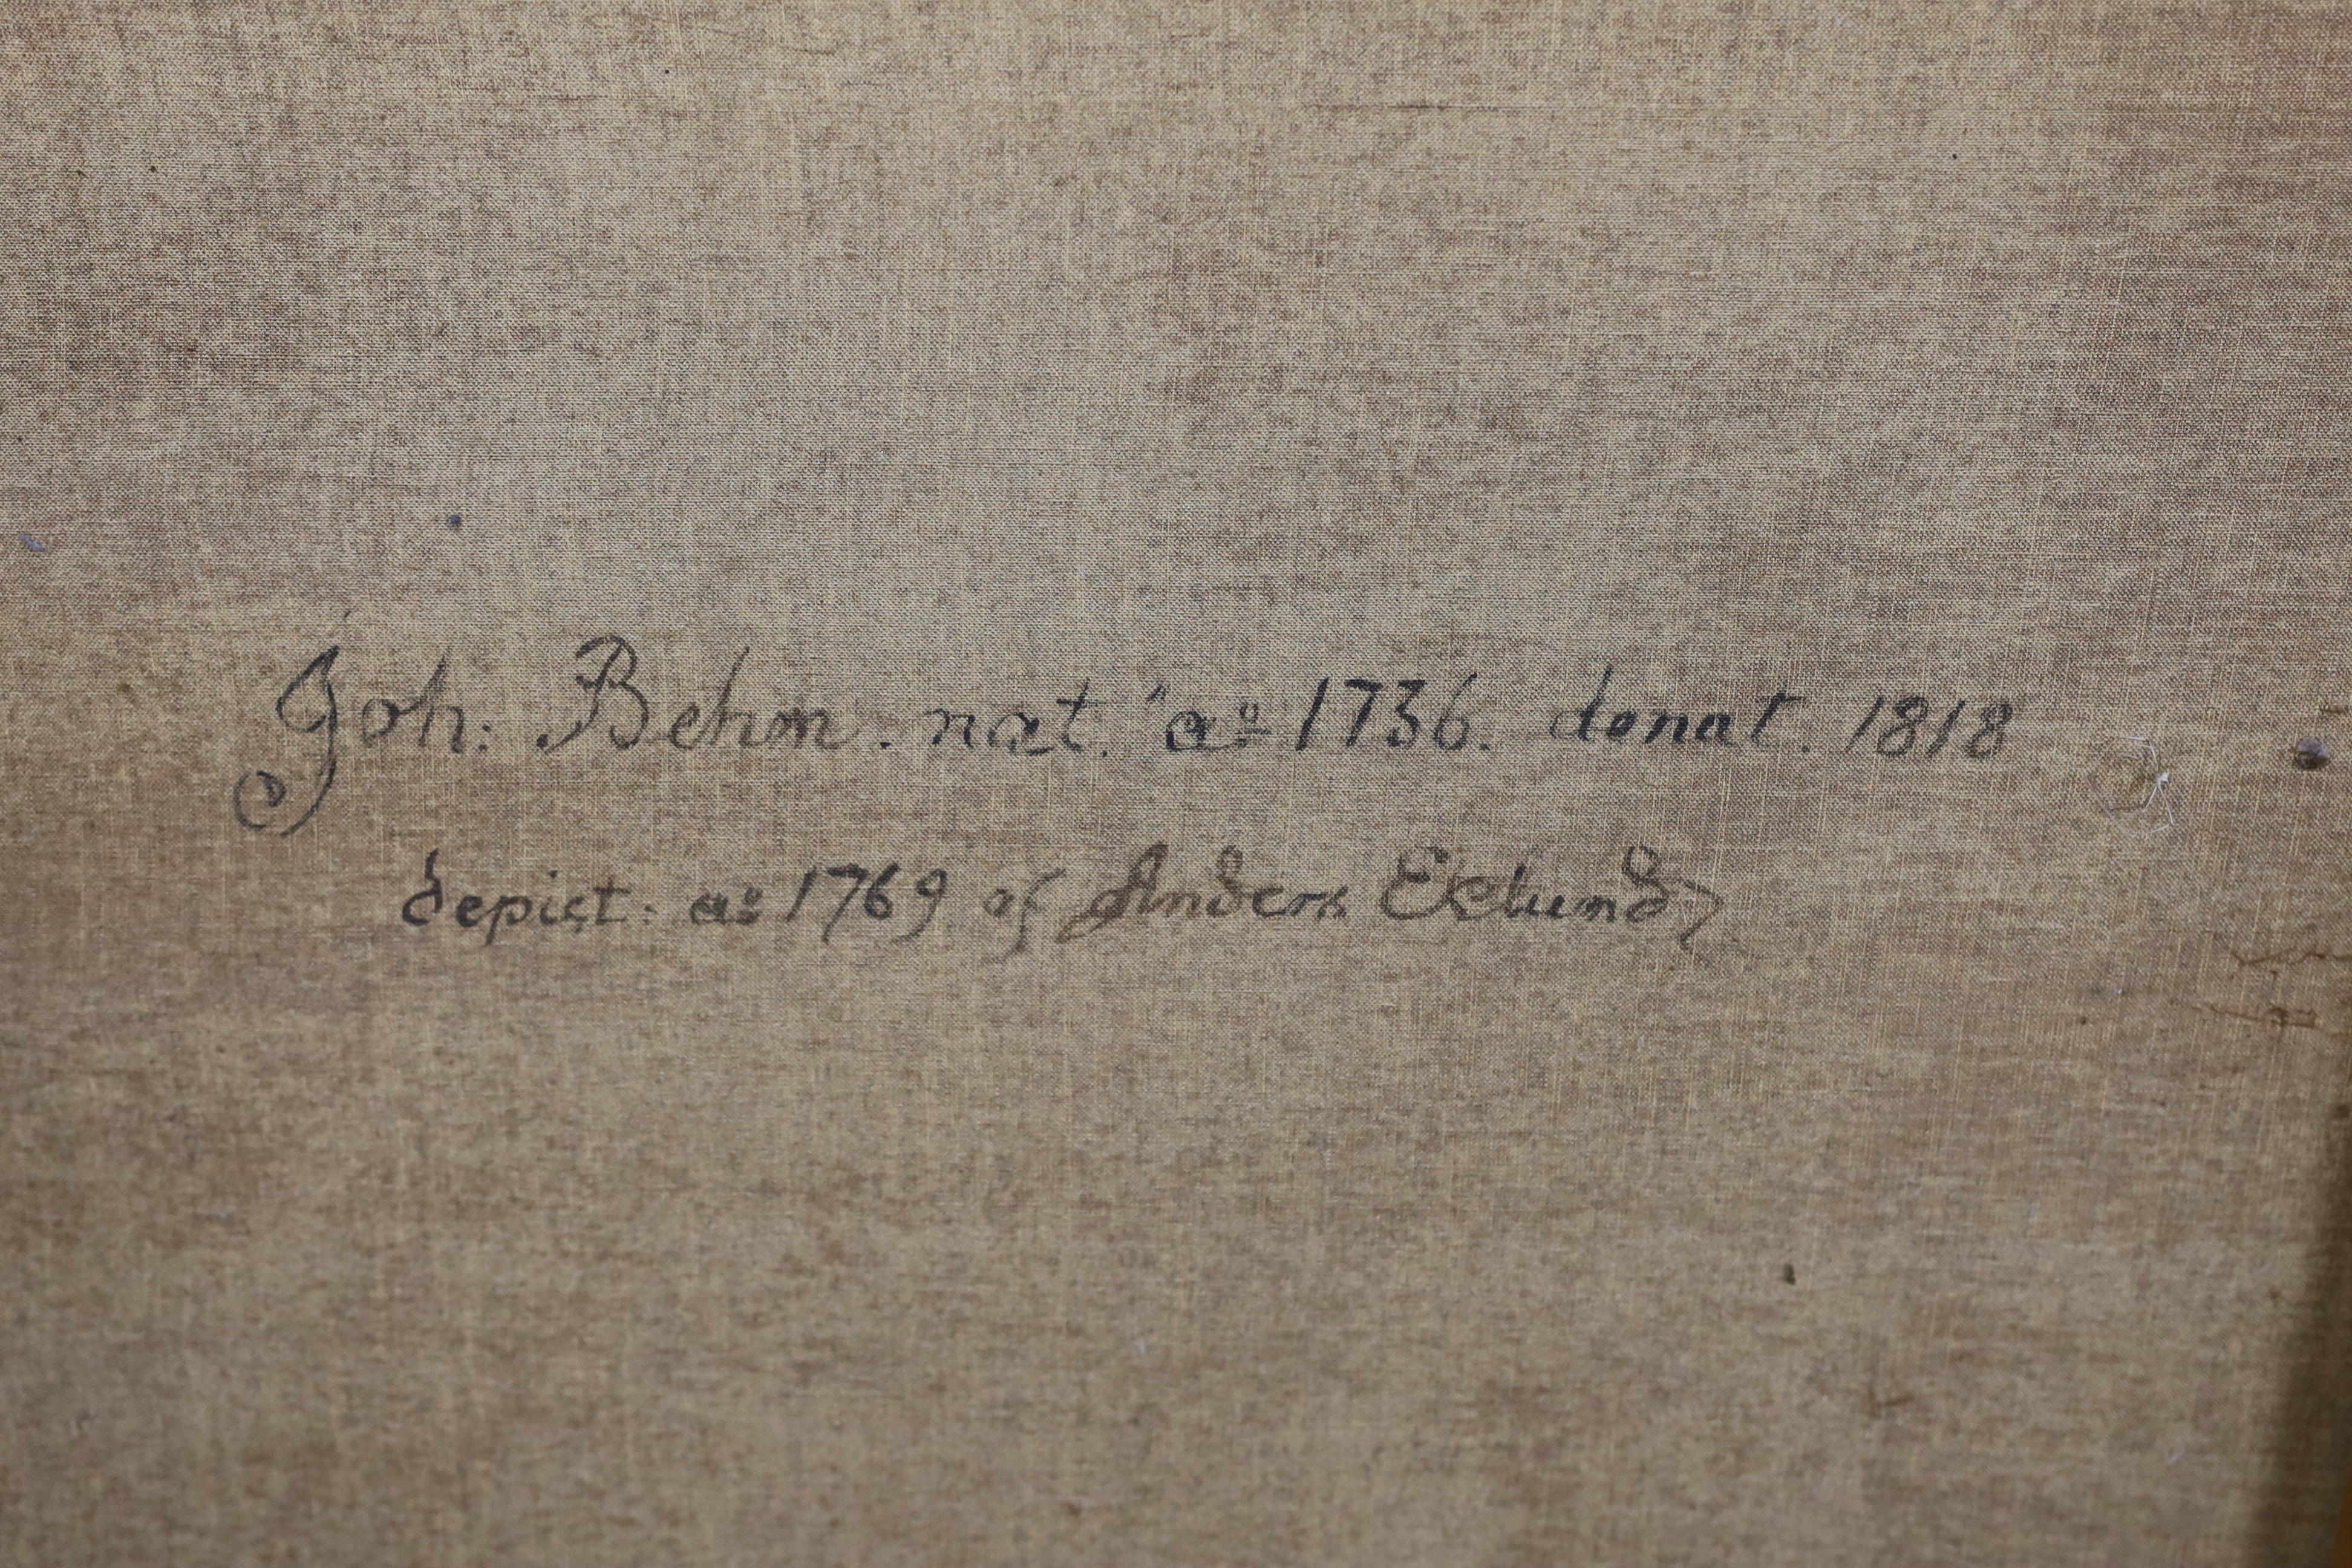 Joh: Behm. nat. aº 1736. denat. 1818
depict: aº 1769 af Anders Eklund